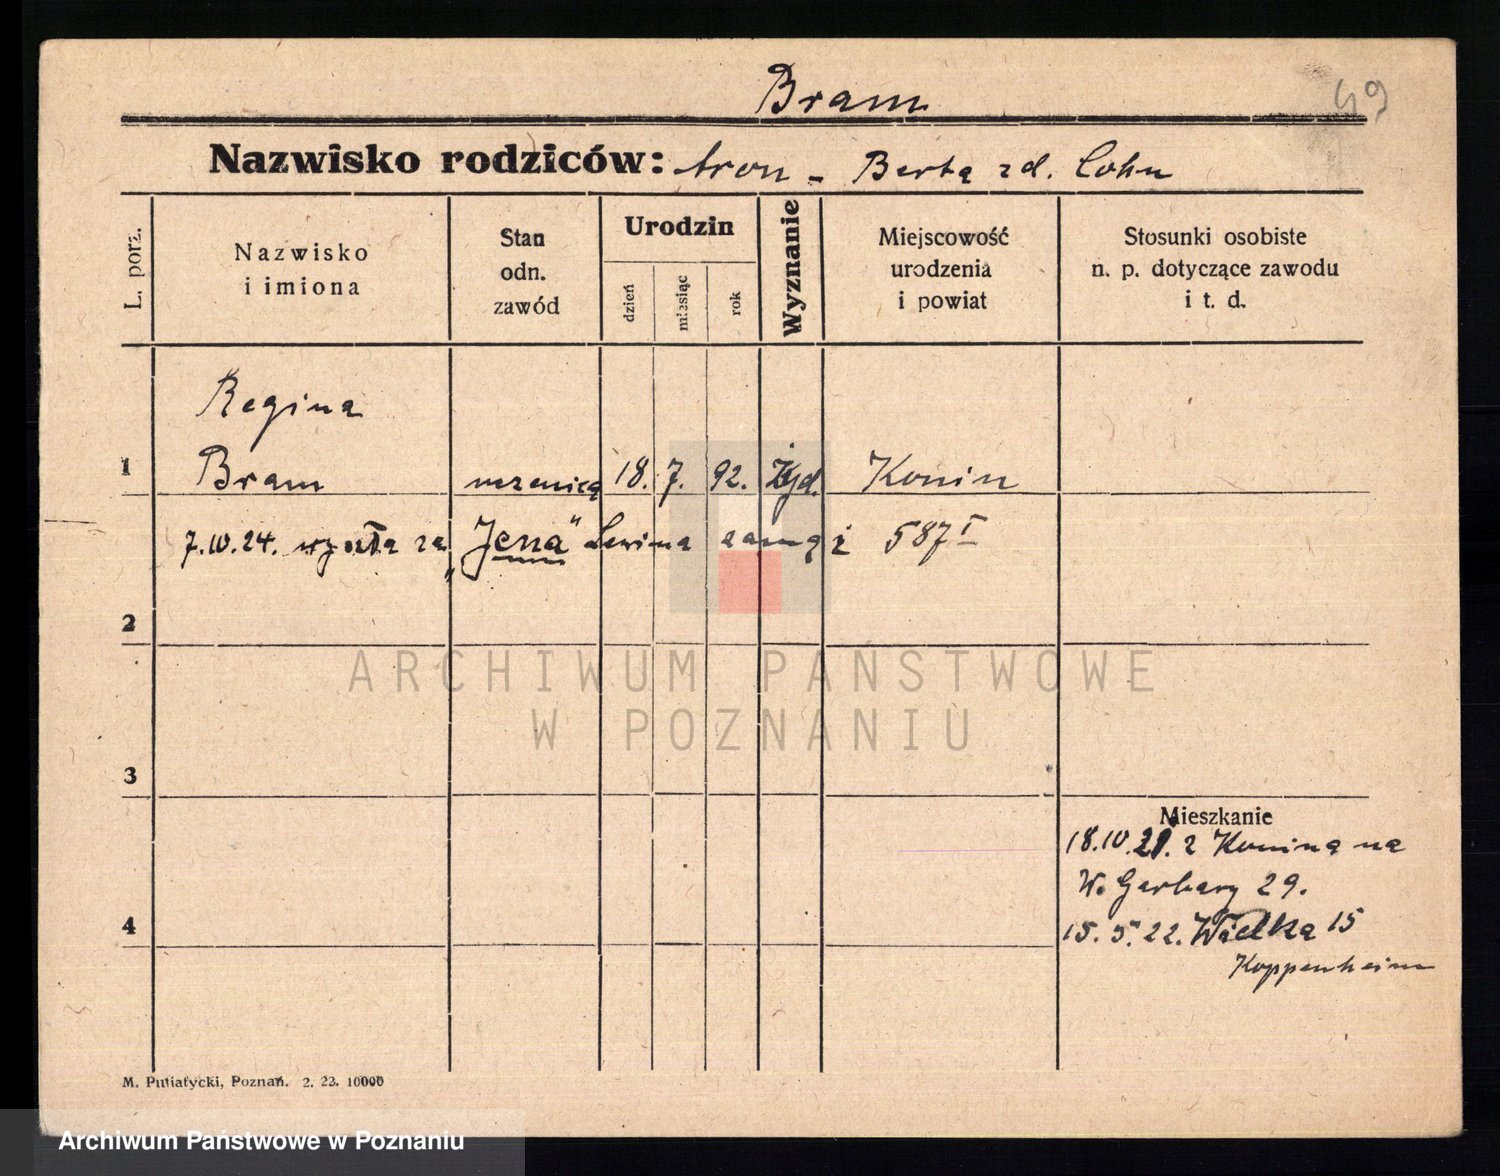 Bram
49
Nazwisko rodziców: Aron - Berta zd. Cohn
L. porz.
Nazwisko
i imiona
Stan
odn.
zawód
Urodzin
dzień
miesiąc
rok
Wyznanie
Miejscowość
urodzenia
i powiat
Stosunki osobiste
n. p. dotyczące zawodu
i t. d.
Regina
1 Bram 18. 7. 92. Żyd. Konin
7.10.24. wyszła za „Jena" Lewina 587 I
2
3
4
Mieszkanie
18.10.21. z Konina na
W. Garbary 29.
15. 5. 22. Wielka 15
Koppenheim
M. Putiatycki, Poznań. 2. 22. 10000
ARCHIWUM PAŃSTWOWE
W POZNANIU
Archiwum Państwowe w Poznaniu